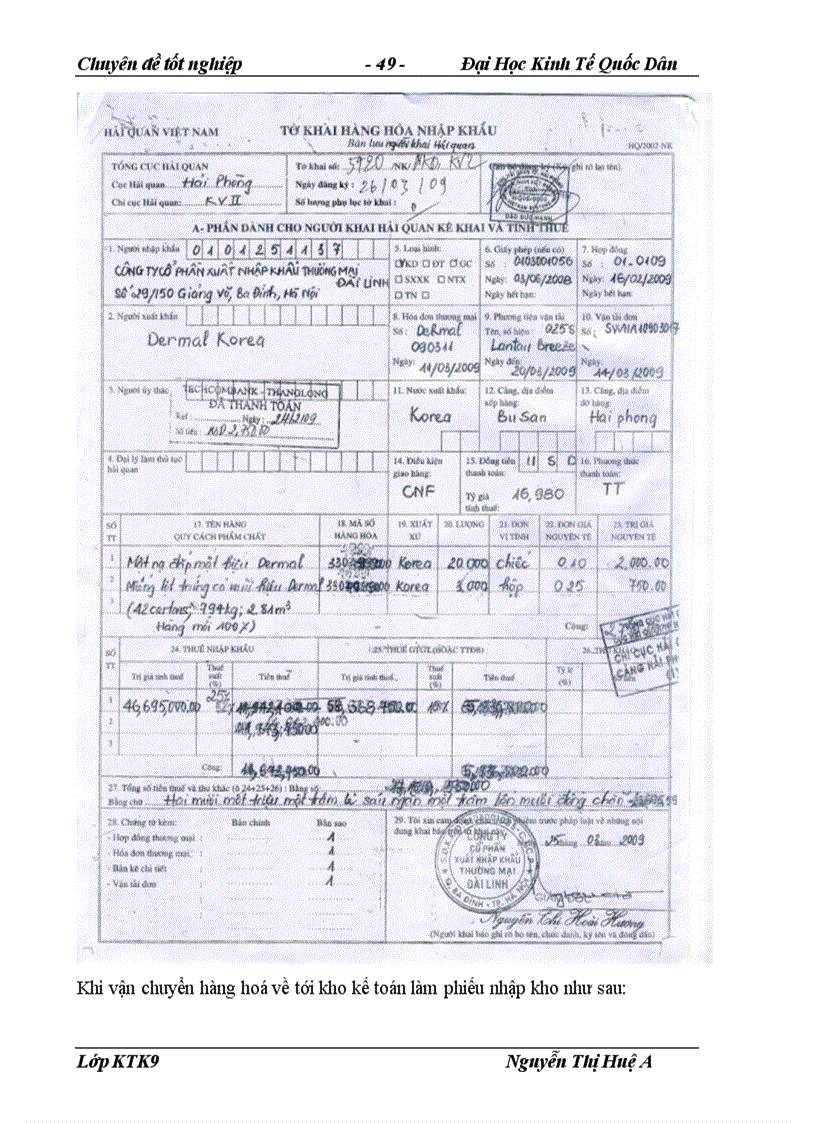 Chuyên đề tốt nghiệp - 49 - Đại Học Kinh Tế Quốc Dân
HẢI QUAN VIỆT NAM TỜ KHAI HÀNG HÓA NHẬP KHẨU
Bản lưu người khai Hải quan
HQ/2002-NK
TỔNG CỤC HẢI QUAN
Cục Hải quan Hải Phòng
Chi cục Hải quan: KVII
Tờ khai số: 5920 /NK/ NKD, KV2
Ngày đăng ký: 26/03/09
Số lượng phụ lục tờ khai:
A- PHẦN DÀNH CHO NGƯỜI KHAI HẢI QUAN KÊ KHAI VÀ TÍNH THUẾ
1. Người nhập khẩu 0101251137
CÔNG TY CỔ PHẦN XUẤT NHẬP KHẨU THƯƠNG MẠI
ĐẠI LINH
Số 29/150 Giảng Võ, Ba Đình, Hà Nội
5. Loại hình:
KD ĐT GC
SXXK NTX
TN
6. Giấy phép (nếu có)
Số 0103001056
Ngày: 03/06/2008
Ngày hết hạn:
7. Hợp đồng
Số 01-0109
Ngày: 16/02/2009
Ngày hết hạn:
2. Người xuất khẩu
Dermal Korea
8. Hóa đơn thương mại
Số: Dermal
090311
Ngày: 11/03/2009
9. Phương tiện vận tải
Tên, số hiệu: 025S
Lantau Breeze
Ngày đến: 20/03/2009
10. Vận tải đơn
Ngày: 14/03/2009
3. Người ủy thác
TECHCOMBANK - THANGLONG
ĐÃ THANH TOÁN
Ref: Ngày:
Số tiền:
11. Nước xuất khẩu:
Korea
12. Cảng, địa điểm
xếp hàng:
BuSan
13. Cảng, địa điểm
dỡ hàng:
Hai phong
4. Đại lý làm thủ tục
hải quan
14. Điều kiện
giao hàng:
CNF
15. Đồng tiền USD
thanh toán:
Tỷ giá 16,980
tính thuế:
16. Phương thức
thanh toán:
TT
SỐ TT
17. TÊN HÀNG
QUY CÁCH PHẨM CHẤT
18. MÃ SỐ
HÀNG HÓA
19. XUẤT
XỨ
20. LƯỢNG
21. ĐƠN
VỊ TÍNH
22. ĐƠN GIÁ
NGUYÊN TỆ
23. TRỊ GIÁ
NGUYÊN TỆ
1 Mặt nạ đắp mặt hiệu Dermal Korea 20.000 chiếc 0.10 2,000.00
2 Dermal Korea 3,000 hộp 0.25 750.00
3 (42 cartons, 794kg; 2.81m3
Hàng mới 100%) Cộng:
SỐ TT
24. THUẾ NHẬP KHẨU
25. THUẾ GTGT (HOẶC TTĐB)
Trị giá tính thuế
Thuế suất (%)
Tiền thuế
Trị giá tính thuế
Thuế suất (%)
Tiền thuế
Tỷ lệ (%)
1 46,695,000.00 10%
2
3
Cộng:
27. Tổng số tiền thuế và thu khác (ô 24+25+26): Bằng số:
Bằng chữ: Hai mươi mốt triệu một trăm lẻ sáu ngàn một trăm bốn mươi đồng chẵn
28. Chứng từ kèm: Bản chính Bản sao
- Hợp đồng thương mại: 1
- Hóa đơn thương mại: 1
- Bản kê chi tiết: 1
- Vận tải đơn 1
29. Tôi xin cam đoan, chịu trách nhiệm trước pháp luật về những nội
dung khai báo trên tờ khai này.
Ngày 25 tháng 03 năm 2009
CÔNG TY
CỔ PHẦN
XUẤT NHẬP KHẨU
THƯƠNG MẠI
ĐẠI LINH
Q. BA ĐÌNH - TP. HÀ NỘI
Nguyễn Thị Hoài Hương
(Người khai báo ghi rõ họ tên, chức danh, ký tên và đóng dấu)
Khi vận chuyển hàng hoá về tới kho kế toán làm phiếu nhập kho như sau:
Lớp KTK9 Nguyễn Thị Huệ A